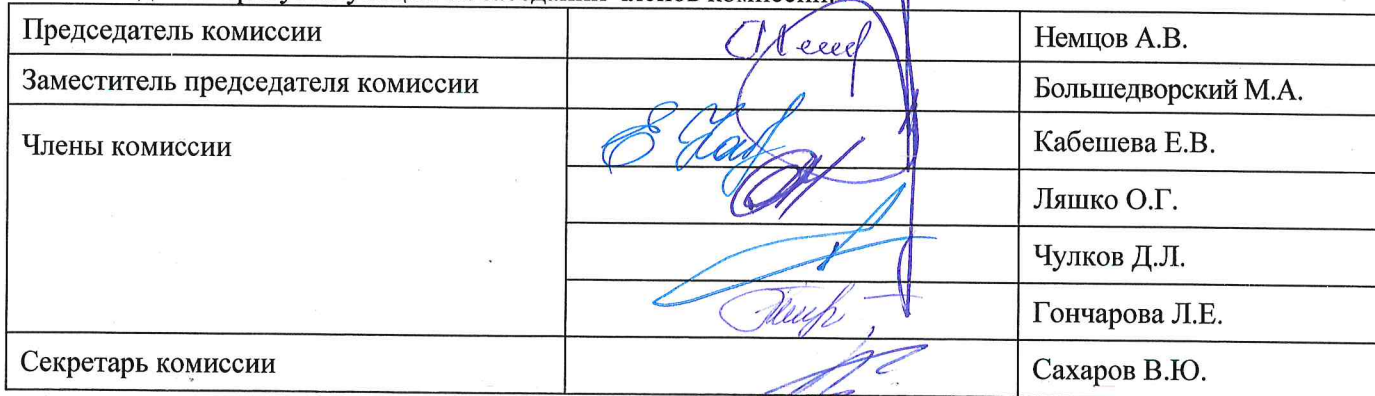 Председатель комиссии Немцов А.В.
Заместитель председателя комиссии Большедворский М.А.
Члены комиссии Кабешева Е.В.
Ляшко О.Г.
Чулков Д.Л.
Гончарова Л.Е.
Секретарь комиссии Сахаров В.Ю.